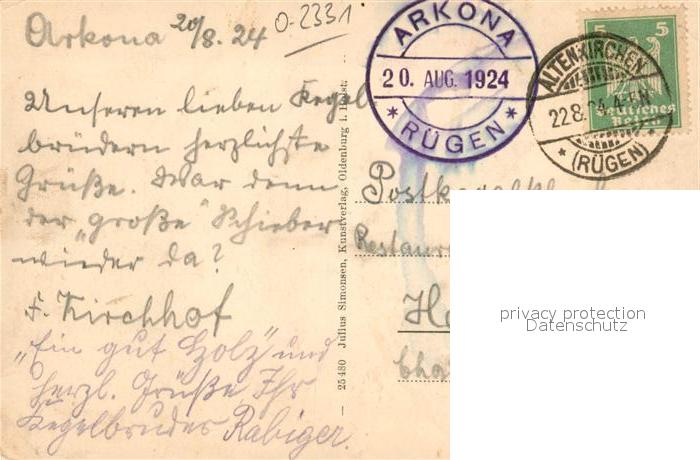 Arkona 20/8. 24
O-2331
Unseren lieben Kegel
brüdern herzlichste
Grüße. War denn
der „große" Schieber
wieder da?
F. Kirchhof
„Ein gut Holz" und
herzl. Grüße Ihr
Kegelbruder Rabiger.
25480 Julius Simonsen, Kunstverlag, Oldenburg i. Holst.
ARKONA
20. AUG. 1924
* RÜGEN *
ALTENKIRCHEN
22.8.24. 4-5N
* (RÜGEN)
5 5
Deutsches
Reich
Restaur
privacy protection
Datenschutz